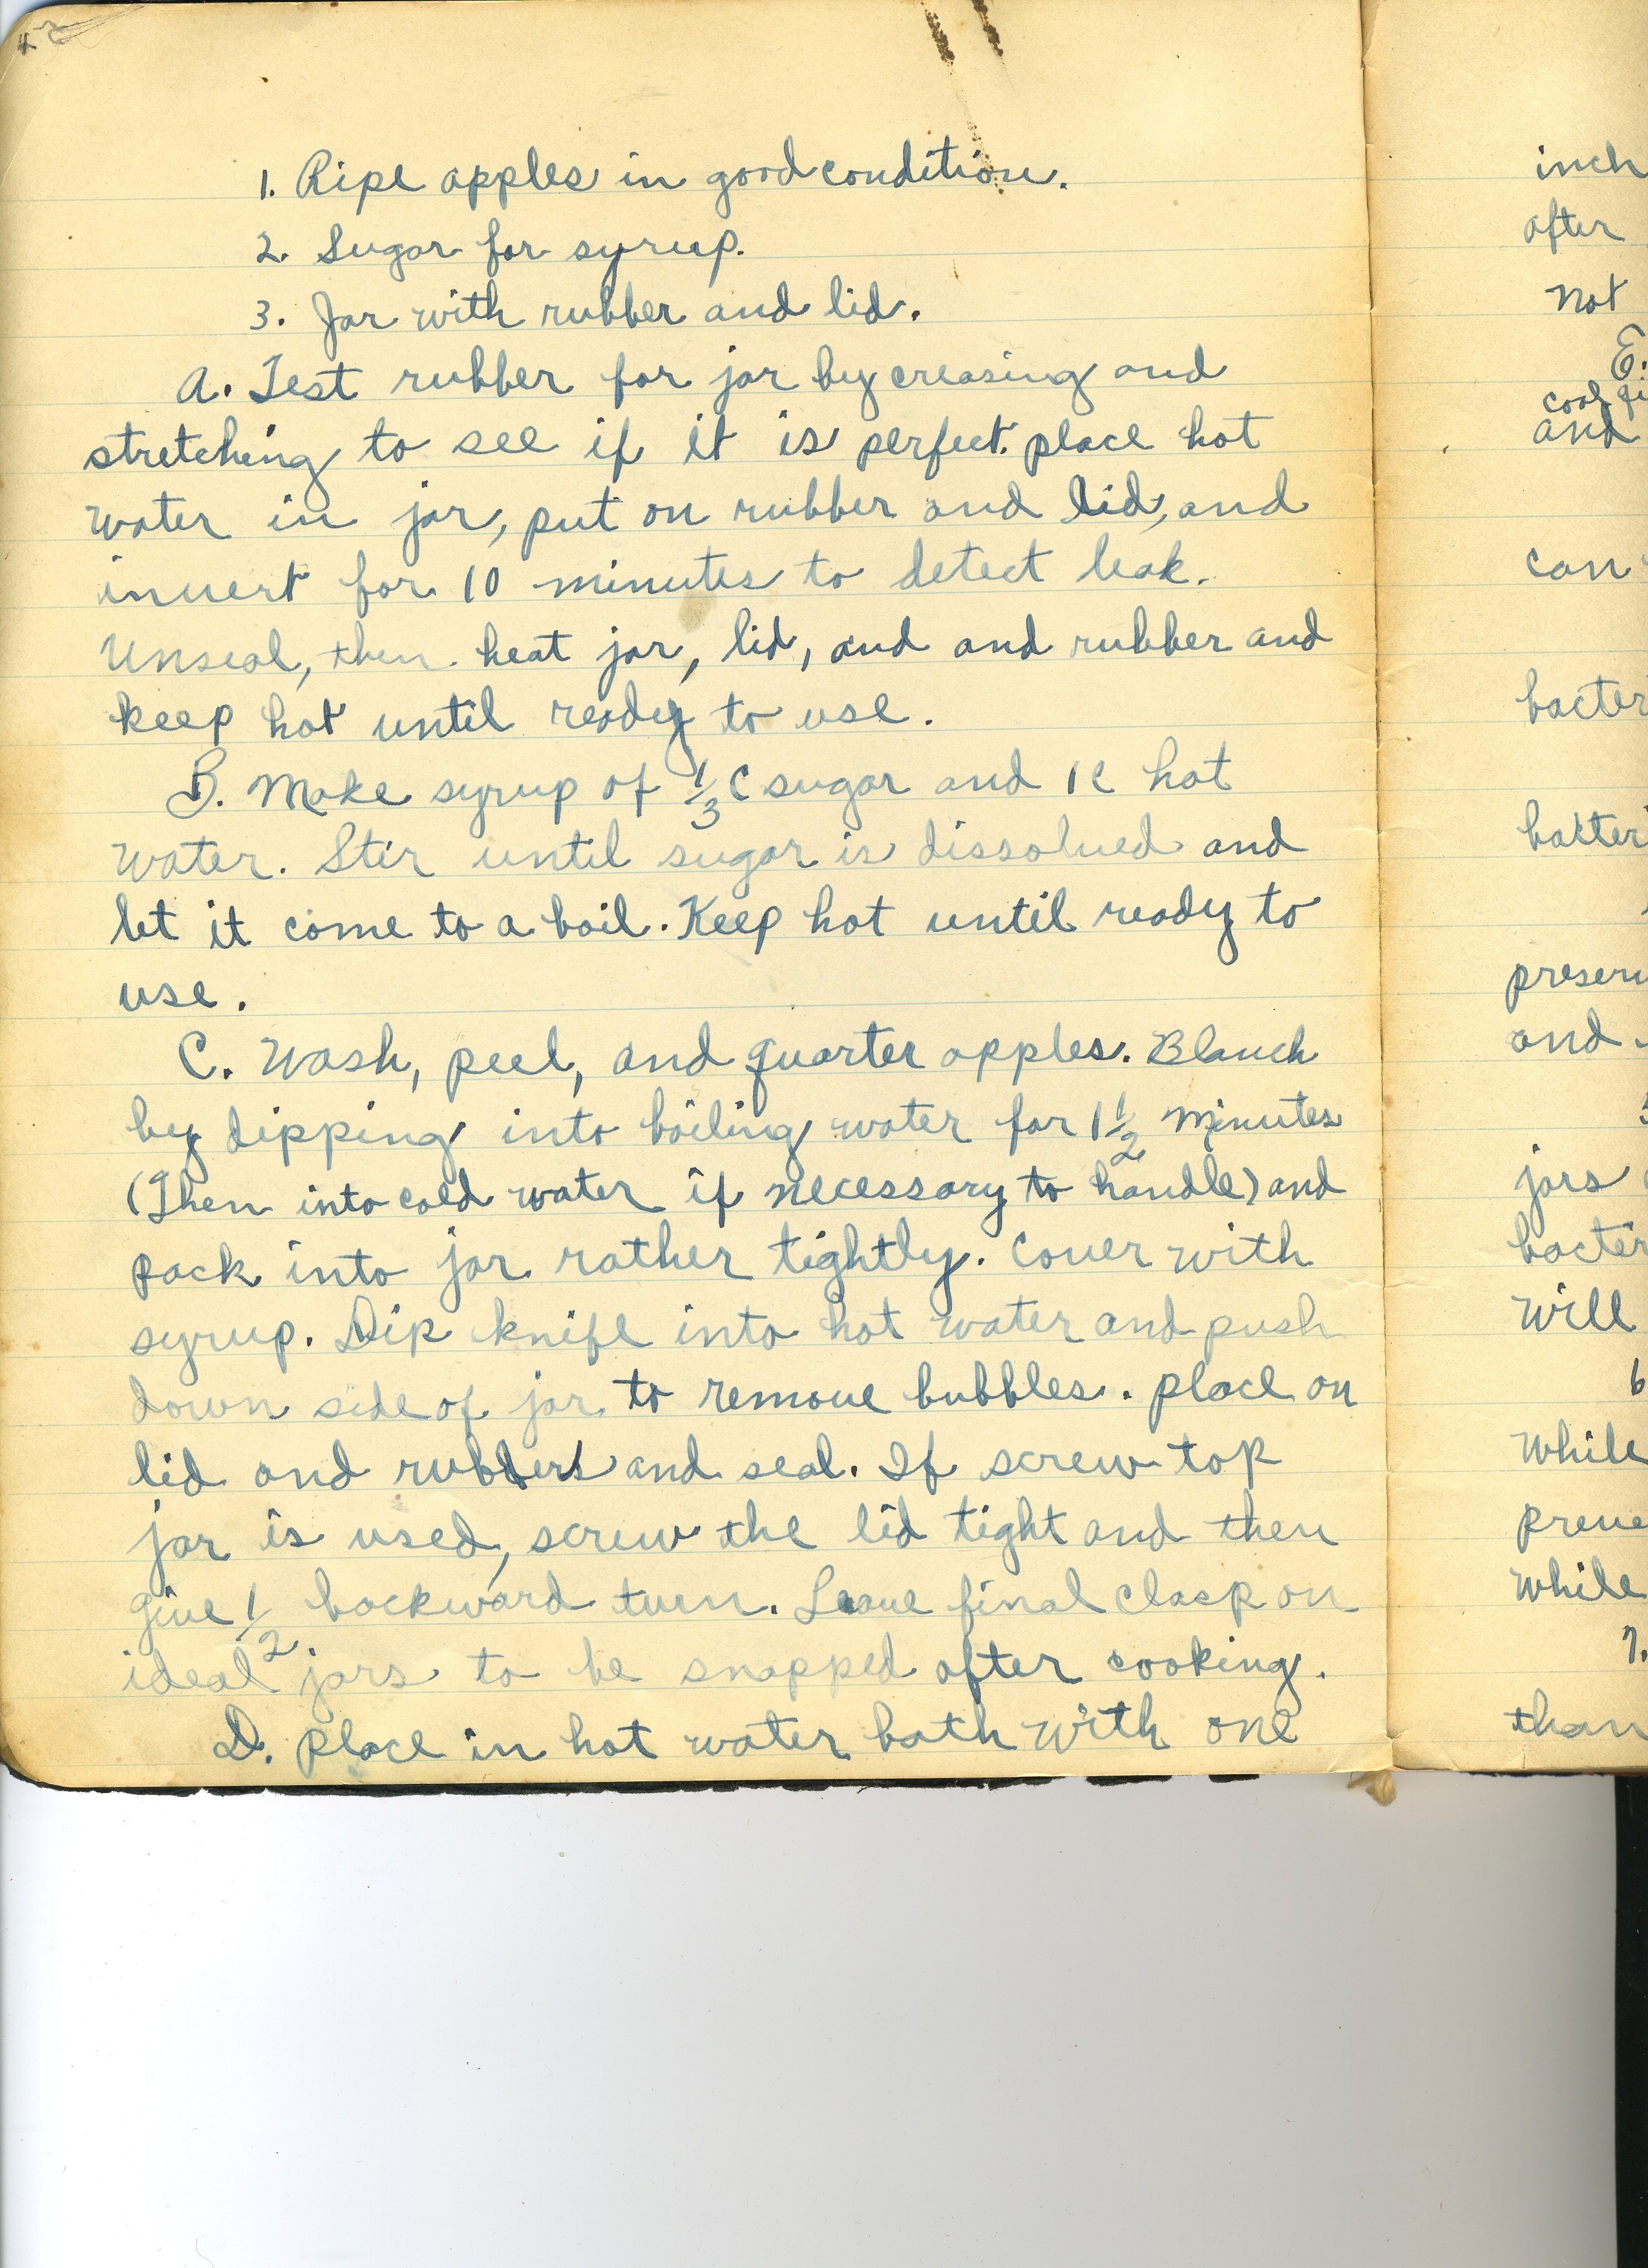 42
1. Ripe apples in good condition.
2. Sugar for syrup.
3. Jar with rubber and lid.
A. Test rubber for jar by creasing and
stretching to see if it is perfect. place hot
water in jar, put on rubber and lid, and
invert for 10 minutes to detect leak.
Unseal, then heat jar, lid, and and rubber and
keep hot until ready to use.
B. Make syrup of 1/3 C sugar and 1C hot
water. Stir until sugar is dissolved and
let it come to a boil. Keep hot until ready to
use.
C. Wash, peel, and quarter apples. Blanch
by dipping into boiling water for 1 1/2 minutes
(Then into cold water if necessary to handle) and
pack into jar rather tightly. Cover with
syrup. Dip knife into hot water and push
down side of jar to remove bubbles. place on
lid and rubbers and seal. If screw top
jar is used, screw the lid tight and then
give 1/2 backward turn. Leave final clasp on
ideal jars to be snapped after cooking.
D. place in hot water bath with one
inch
after
not
E.
cool
and
can
bacter
bakter
preserv
and
jars
bacter
will
6
while
preve
while
7.
than